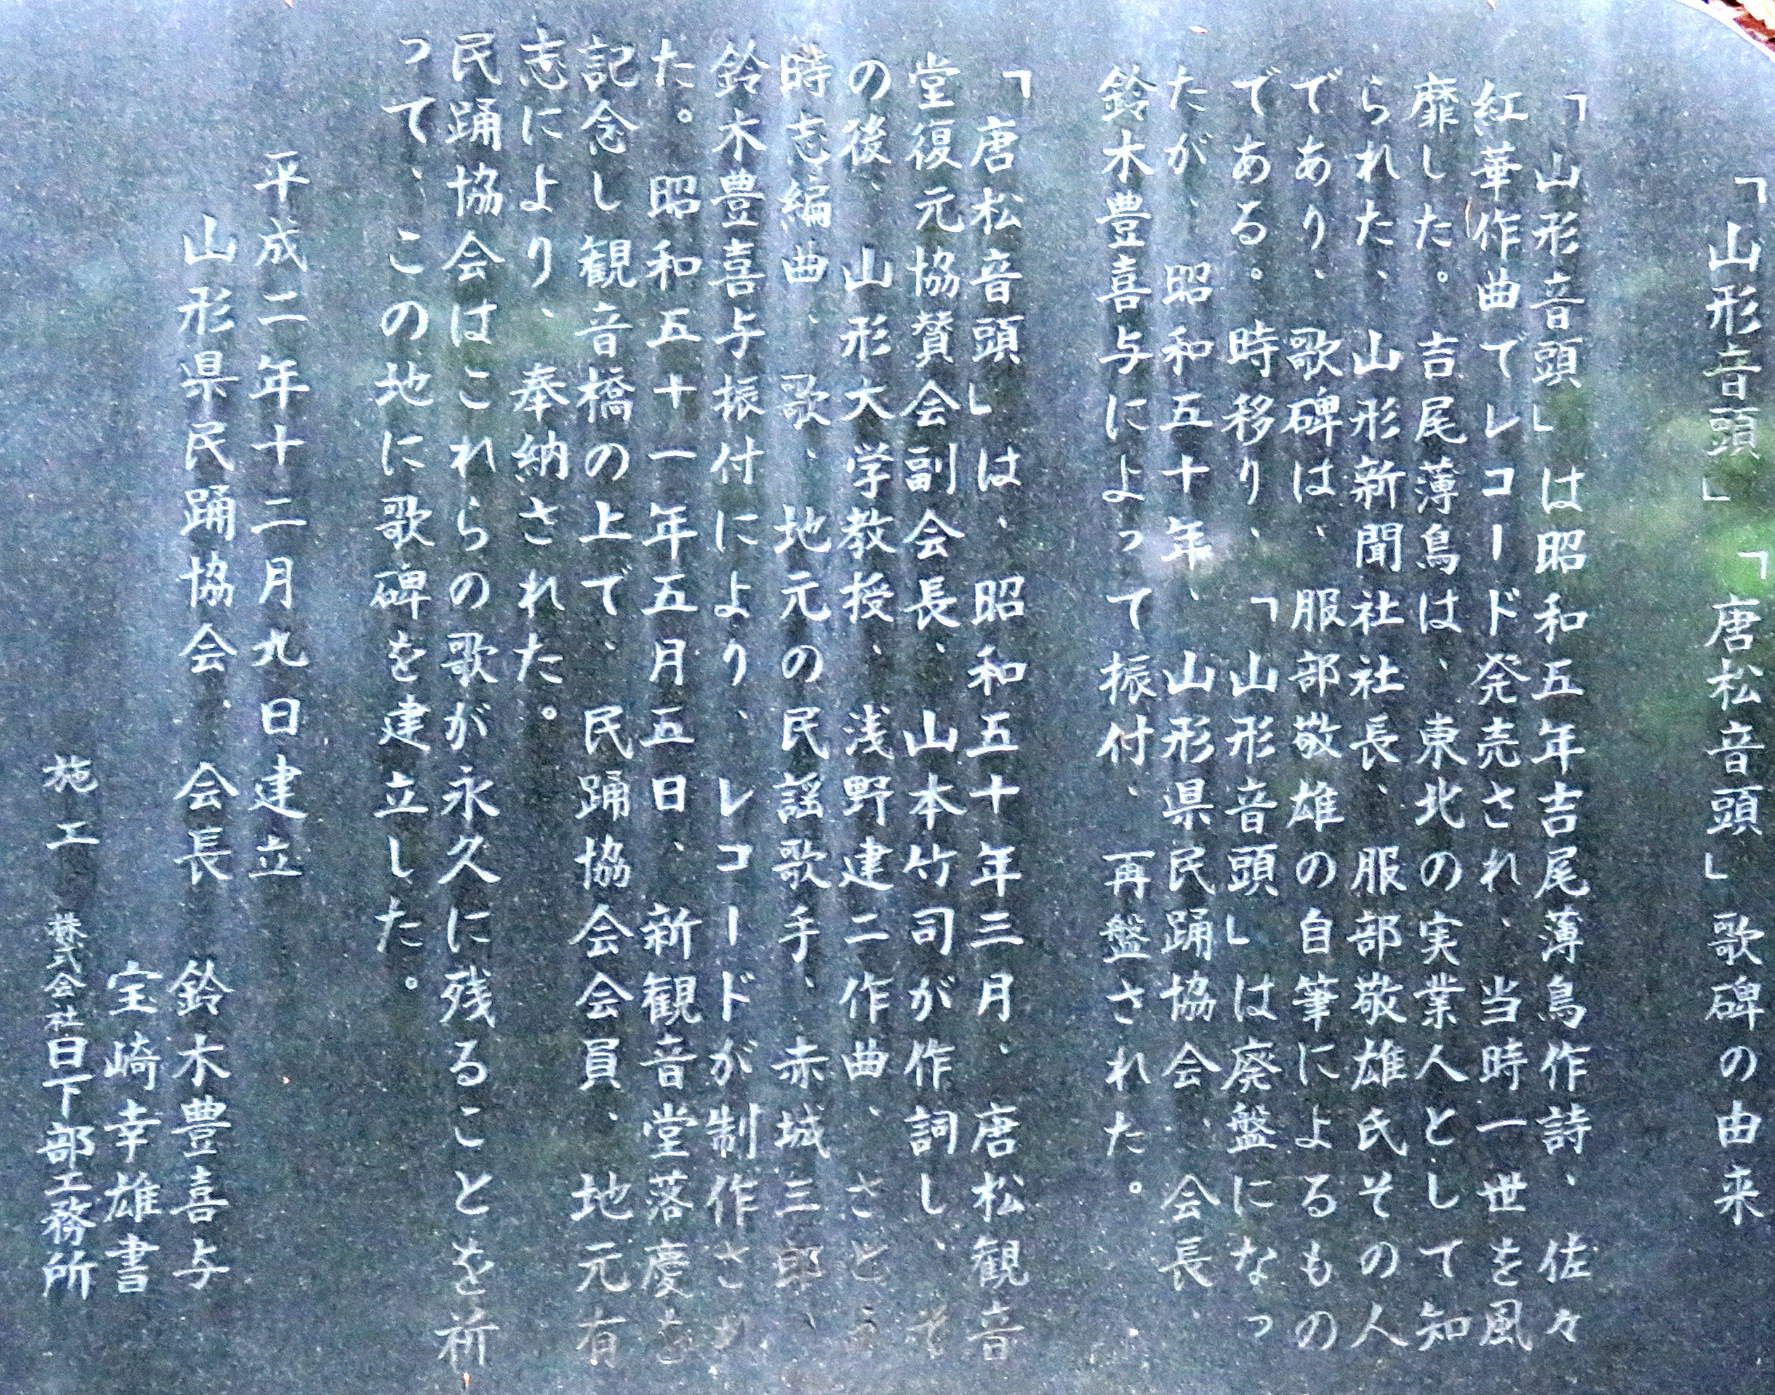 「山形音頭」「唐松音頭」歌碑の由来
「山形音頭」は昭和五年吉尾薄鳥作詩、佐々
紅華作曲でレコード発売され、当時一世を風
靡した。吉尾薄鳥は、東北の実業人として知
られた、山形新聞社社長、服部敬雄氏その人
であり、歌碑は、服部敬雄の自筆によるもの
である。時移り、「山形音頭」は廃盤になっ
たが、昭和五十年、山形県民踊協会、会長、
鈴木豊喜与によって振付、再盤された。
「唐松音頭」は、昭和五十年三月、唐松観音
堂復元協賛会副会長、山本竹司が作詞し、そ
の後、山形大学教授、浅野建二作曲、さとう
時志編曲、歌、地元の民謡歌手、赤城三郎、
鈴木豊喜与振付により、レコードが制作され
た。昭和五十一年五月五日、新観音堂落慶を
記念し観音橋の上で、民踊協会会員、地元有
志により、奉納された。
民踊協会はこれらの歌が永久に残ることを祈
って、この地に歌碑を建立した。
平成二年十二月九日建立
山形県民踊協会、会長 鈴木豊喜与
宝崎幸雄書
施工 株式会社日下部工務所